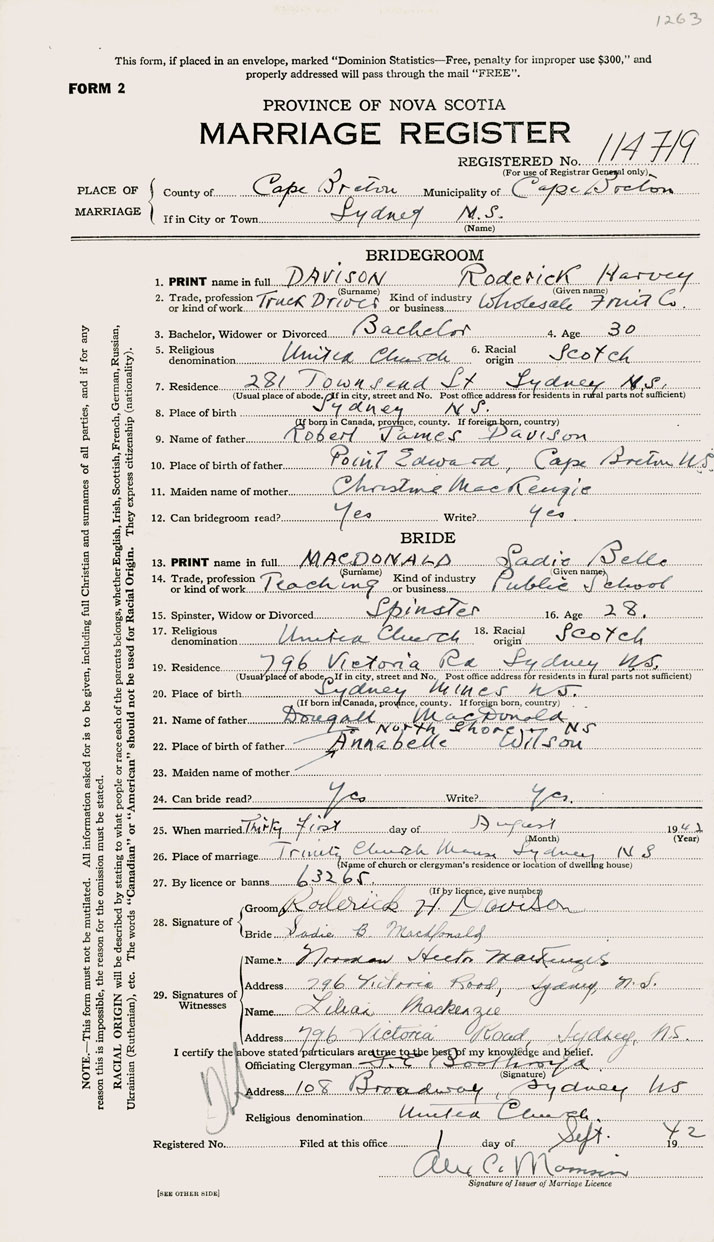 1263
This form, if placed in an envelope, marked "Dominion Statistics—Free, penalty for improper use $300," and
properly addressed will pass through the mail "FREE".
FORM 2
PROVINCE OF NOVA SCOTIA
MARRIAGE REGISTER
REGISTERED No. 114719
(For use of Registrar General only)
PLACE OF MARRIAGE
County of Cape Breton Municipality of Cape Breton
If in City or Town Sydney N.S.
(Name)
BRIDEGROOM
1. PRINT name in full DAVISON Roderick Harvey
(Surname) (Given name)
2. Trade, profession or kind of work Truck Driver Kind of industry or business Wholesale Fruit Co.
3. Bachelor, Widower or Divorced Bachelor 4. Age 30
5. Religious denomination United Church 6. Racial origin Scotch
7. Residence 281 Townsend St Sydney N.S.
(Usual place of abode. If in city, street and No. Post office address for residents in rural parts not sufficient)
8. Place of birth Sydney N.S.
(If born in Canada, province, county. If foreign born, country)
9. Name of father Robert James Davison
10. Place of birth of father Point Edward, Cape Breton N.S.
11. Maiden name of mother Christine MacKenzie
12. Can bridegroom read? Yes Write? Yes.
BRIDE
13. PRINT name in full MACDONALD Sadie Belle
(Surname) (Given name)
14. Trade, profession or kind of work Teaching Kind of industry or business Public School
15. Spinster, Widow or Divorced Spinster 16. Age 28.
17. Religious denomination United Church 18. Racial origin Scotch
19. Residence 796 Victoria Rd Sydney N.S.
(Usual place of abode. If in city, street and No. Post office address for residents in rural parts not sufficient)
20. Place of birth Sydney Mines N.S.
(If born in Canada, province, county. If foreign born, country)
21. Name of father Dougall MacDonald
North Shore NS
22. Place of birth of father Annabelle Wilson
23. Maiden name of mother
24. Can bride read? Yes Write? Yes.
25. When married Thirty First day of August 1942
(Month) (Year)
26. Place of marriage Trinity Church Manse Sydney N S
(Name of church or clergyman's residence or location of dwelling house)
27. By licence or banns 63265.
(If by licence, give number)
28. Signature of
Groom Roderick H. Davison
Bride Sadie B. MacDonald
29. Signatures of Witnesses
Name Norman Hector MacKenzie
Address 796 Victoria Road, Sydney, N.S.
Name Lilian Mackenzie
Address 796 Victoria Road, Sydney, N.S.
I certify the above stated particulars are true to the best of my knowledge and belief.
Officiating Clergyman
(Signature)
Address 108 Broadway, Sydney NS
Religious denomination United Church.
Registered No. Filed at this office 1 day of Sept. 1942
Alex C.
Signature of Issuer of Marriage Licence
[SEE OTHER SIDE]
NOTE.—This form must not be mutilated. All information asked for is to be given, including full Christian and surnames of all parties, and if for any
reason this is impossible, the reason for the omission must be stated.
RACIAL ORIGIN will be described by stating to what people or race each of the parents belongs, whether English, Irish, Scottish, French, German, Russian,
Ukrainian (Ruthenian), etc. The words "Canadian" or "American" should not be used for Racial Origin. They express citizenship (nationality).